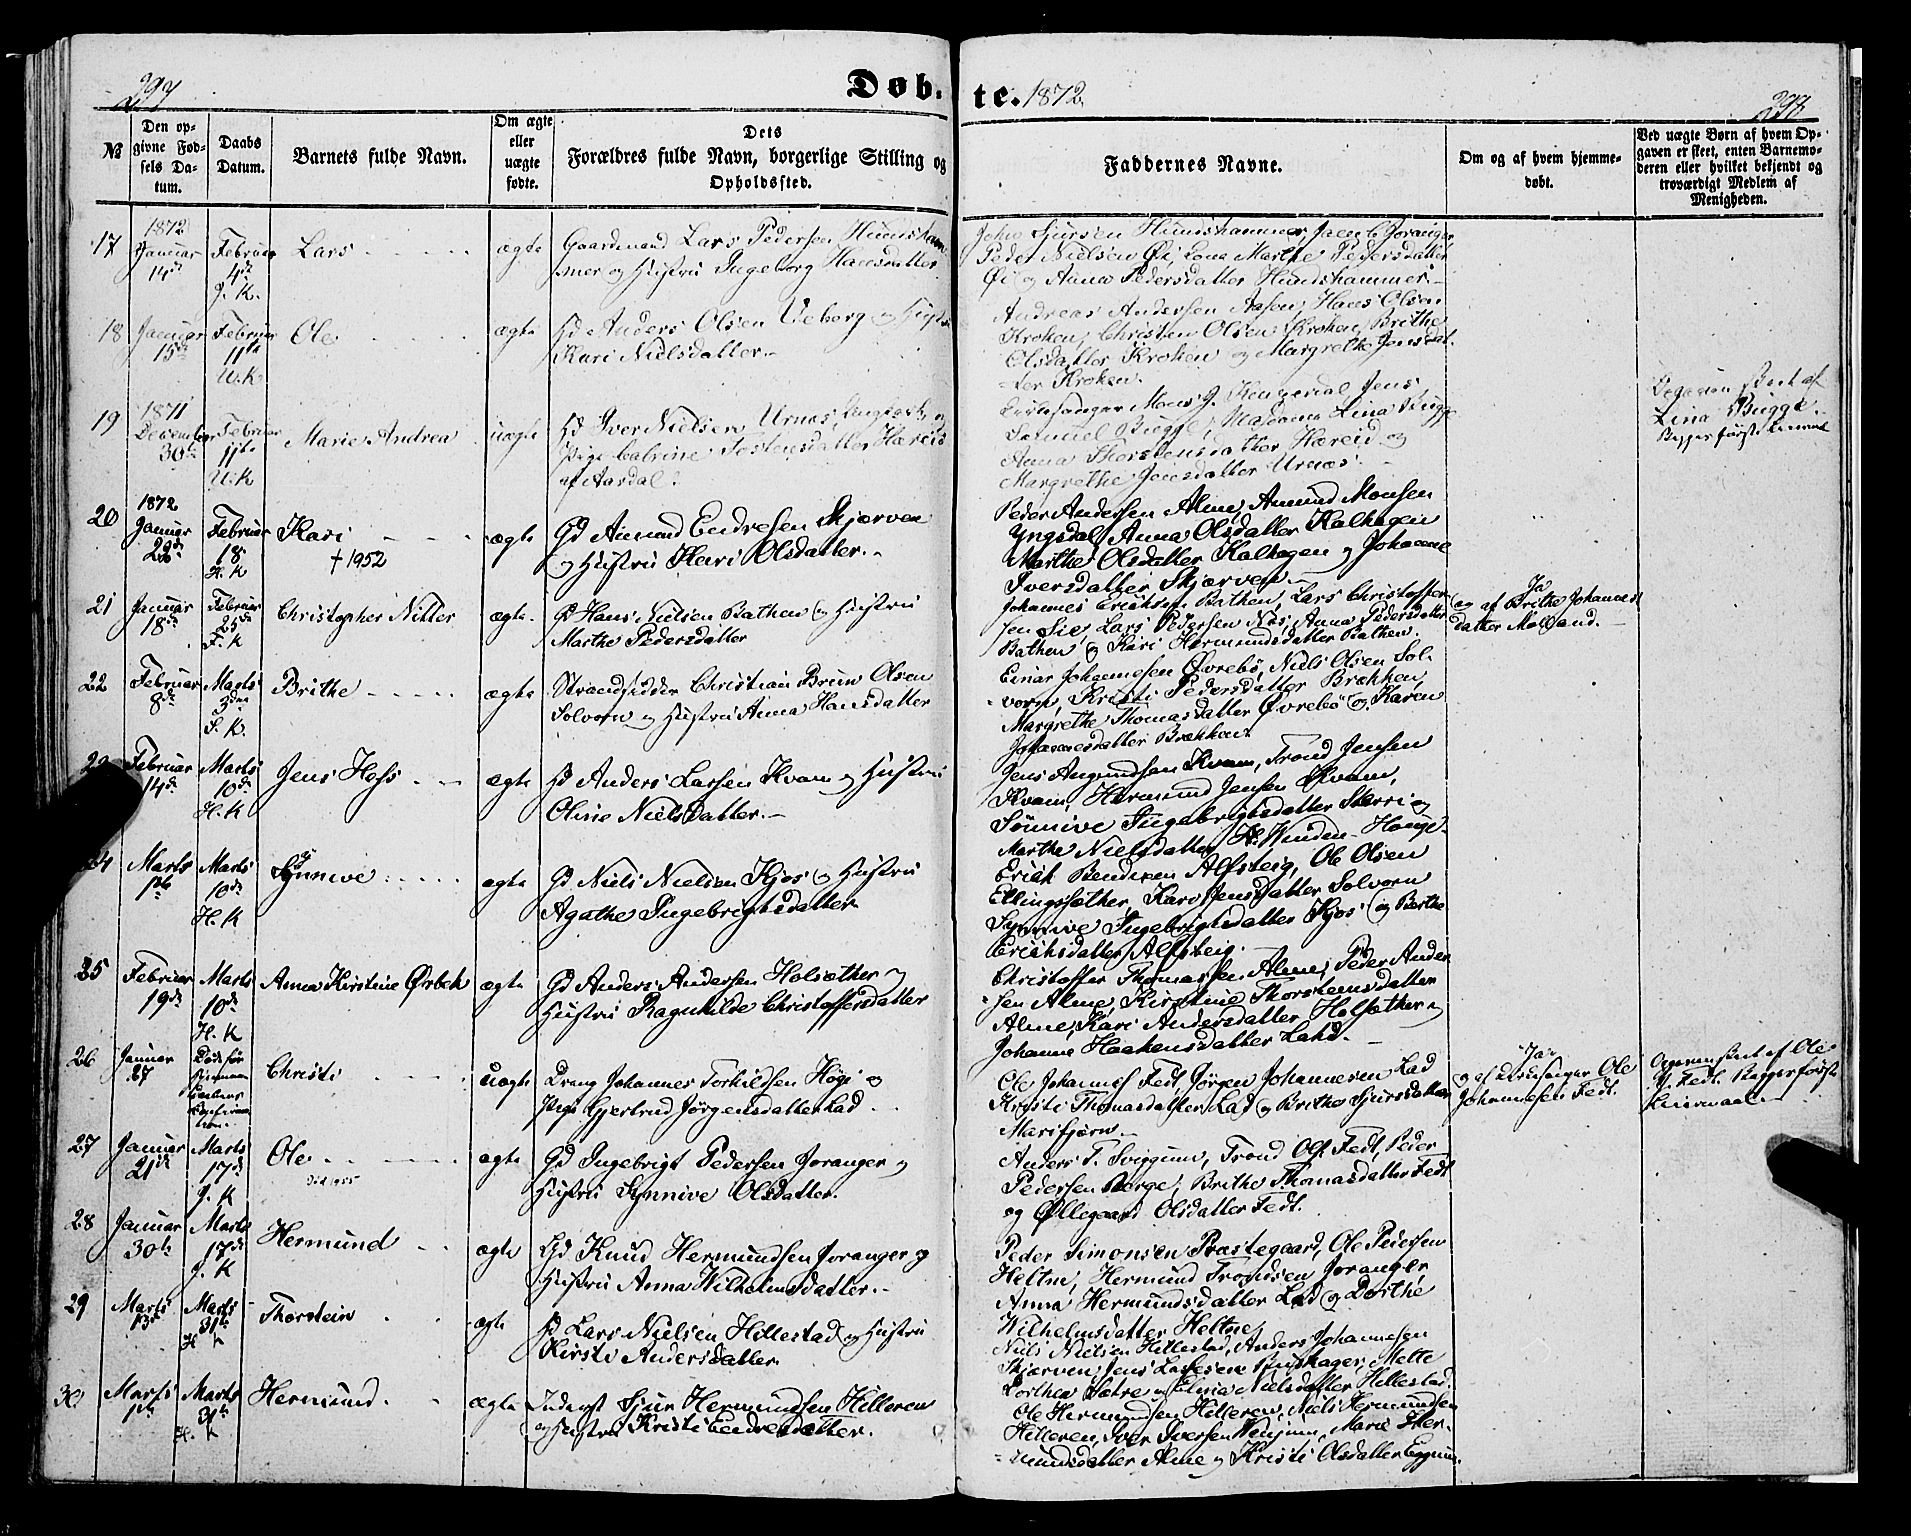 297
Døbte. 1872.
298
№
Den opgivne Fødsels Datum.
Daabs Datum.
Barnets fulde Navn.
Om ægte eller uægte fødte.
Dets Forældres fulde Navn, borgerlige Stilling og Opholdssted.
Faddernes Navne.
Om og af hvem hjemmedøbt.
Ved uægte Børn af hvem Opgaven er skeet, enten Barnemoderen eller hvilket bekjendt og troværdigt Medlem af Menigheden.
17
1872
Januar
14de
Februar
4de
J. K.
Lars
ægte
Gaardmand Lars Pedersen Hundsham
mer og Hustru Ingeborg Hansdatter
John Sjursen Hundshammer, Joranger
Peder Nielsen Øi, Marthe Pedersdatter
Øi og Anna Pedersdatter Hundshammer
18
Januar
15de
Februar
11te
U. K
Ole
ægte
Gd Anders Olsen Ueberg og Hustru
Kari Nielsdatter.
Andreas Andersen Aasen, Hans Olsen
Kroken, Christen Olsen Kroken, Brithe
Olsdatter Kroken og Margrethe Jensdat
ter Kroken.
19
1871
December
30te
Februar
11te
U. K
Marie Andrea
uægte
Gd Iver Nielsen Urnæs, Ungkarl, og
Pige Cathrine Tostensdatter Hæreid
af Aardal.
Kirkesanger Mons J. Jens
Samuel Bugge, Madame Lina Bugge
Anna Thorstensdatter Hæreid og
Margrethe Jensdatter Urnæs.
Opgaven skeet af
Lina Bugge.
Begges første Leiermaal
20
1872
Januar
28de
Februar
18
H. K
Kari
† 1952
ægte
Gd Amund Endresen Skjerven
og Hustru Kari Olsdatter.
Peder Andersen Alme, Amund Monsen
Yngsdal, Anna Olsdatter Kalhagen
Marthe Olsdatter Kalhagen og Johanne
Iversdatter Skjerven.
21
Januar
18de
Februar
25de
F. K
Christopher Nitter
ægte
Gd Hans Nielsen Bathen og Hustru
Marthe Pedersdatter
Johannes Erichsen Bathen, Lars Christoffer
sen Sie, Lars Pedersen Næs, Anna Pedersdatter
Bathen og Kari Hermundsdatter Bathen.
Ja
og af Brithe Johannes
datter Molland.
22
Februar
8de
Marts
3die
S. K.
Brithe
ægte
Strandsidder Christian Bruun Olsen
Solvorn og Hustru Anna Hansdatter
Einar Johannesen Øvrebø, Niels Olsen Sol
vorn, Kristi Pedersdatter Brækken,
Margrethe Thomasdatter Øvrebø og Karen
Johannesdatter Brækken.
23
Februar
14de
Marts
10de
H. K
Jens Hess
ægte
Gd Anders Larsen Kvam og Hustru
Oline Nielsdatter.
Jens Amundsen Kvam, Trond Jensen
Kvam, Hermund Jensen Kvam,
Sønnive Ingebrigtsdatter Skerri og
Marthe Nielsdatter Hauge
24
Marts
1ste
Marts
10de
H. K
Synnive
ægte
Gd Niels Nielsen Kjos og Hustru
Agathe Ingebrigtsdatter
Erich Bendixen Alfsteig, Ole Olsen
Ellingsæther, Kari Jensdatter Solvorn
Synnive Ingebrigtsdatter Kjos og Berthe
Erichsdatter Alfsteig.
25
Februar
19de
Marts
10de
H. K
Anna Kirstine Ørbech
ægte
Gd Anders Andersen Holsæther og
Hustru Ragnhilde Christoffersdatter
Christoffer Thomassen Alme, Peder Ander
sen Alme, Kirstine Thorsteensdatter
Alme, Kari Andersdatter Holsæther og
Johanne Haakensdatter Lahd.
26
Januar
27
Christi
uægte
Dreng Johannes Torkildsen Høgi og
Pige Gjertrud Jørgensdatter Lad
Ole Johannes Fedt, Jørgen Johannesen Lad
Kristi Thomasdatter Lad og Brithe Sjursdatter
Marifjøren
Ja
og af Kirkesanger Ole
Johannesen Fedt.
Opgaven skeet af Ole
J. Fedt. Begges første
Leiermaal
27
Januar
21de
Marts
17de
J. K
Ole
Død 1955
ægte
Gd Ingebrigt Pedersen Joranger og
Hustru Synnive Olsdatter.
Anders T. Sviggum, Trond Ols. Fedt, Peder
Pedersen Berge, Brithe Thomasdatter Fedt
og Øllegaard Olsdatter Fedt.
28
Januar
30te
Marts
17de
J. K
Hermund
ægte
Gd Knud Hermundsen Joranger og
Hustru Anna Wilhelmsdatter.
Peder Simonsen Præstegaard, Ole Pedersen
Heltne, Hermund Trondsen Joranger
Anna Hermundsdatter Lad og Dorthe
Wilhelmsdatter Heltne
29
Marts
13de
Marts
31te
H. K
Thorstein
ægte
Gd Lars Nielsen Hillestad og Hustru
Kirsti Andersdatter
Niels Nielsen Hillestad, Anders Johannesen
Skjerven, Jens Larsen, Mette
Dorthea Sætre og Elina Nielsdatter Hillestad.
30
Marts
1ste
Marts
31te
H. K
Hermund.
ægte
Inderst Sjur Hermundsen Hilleren
og Hustru Kristi Endresdatter.
Ole Hermundsen Hilleren, Niels Hermundsen
Hilleren, Iver Iversen Venjum, Marie Her
mundsdatter Alme og Kristi Olsdatter Eggum.